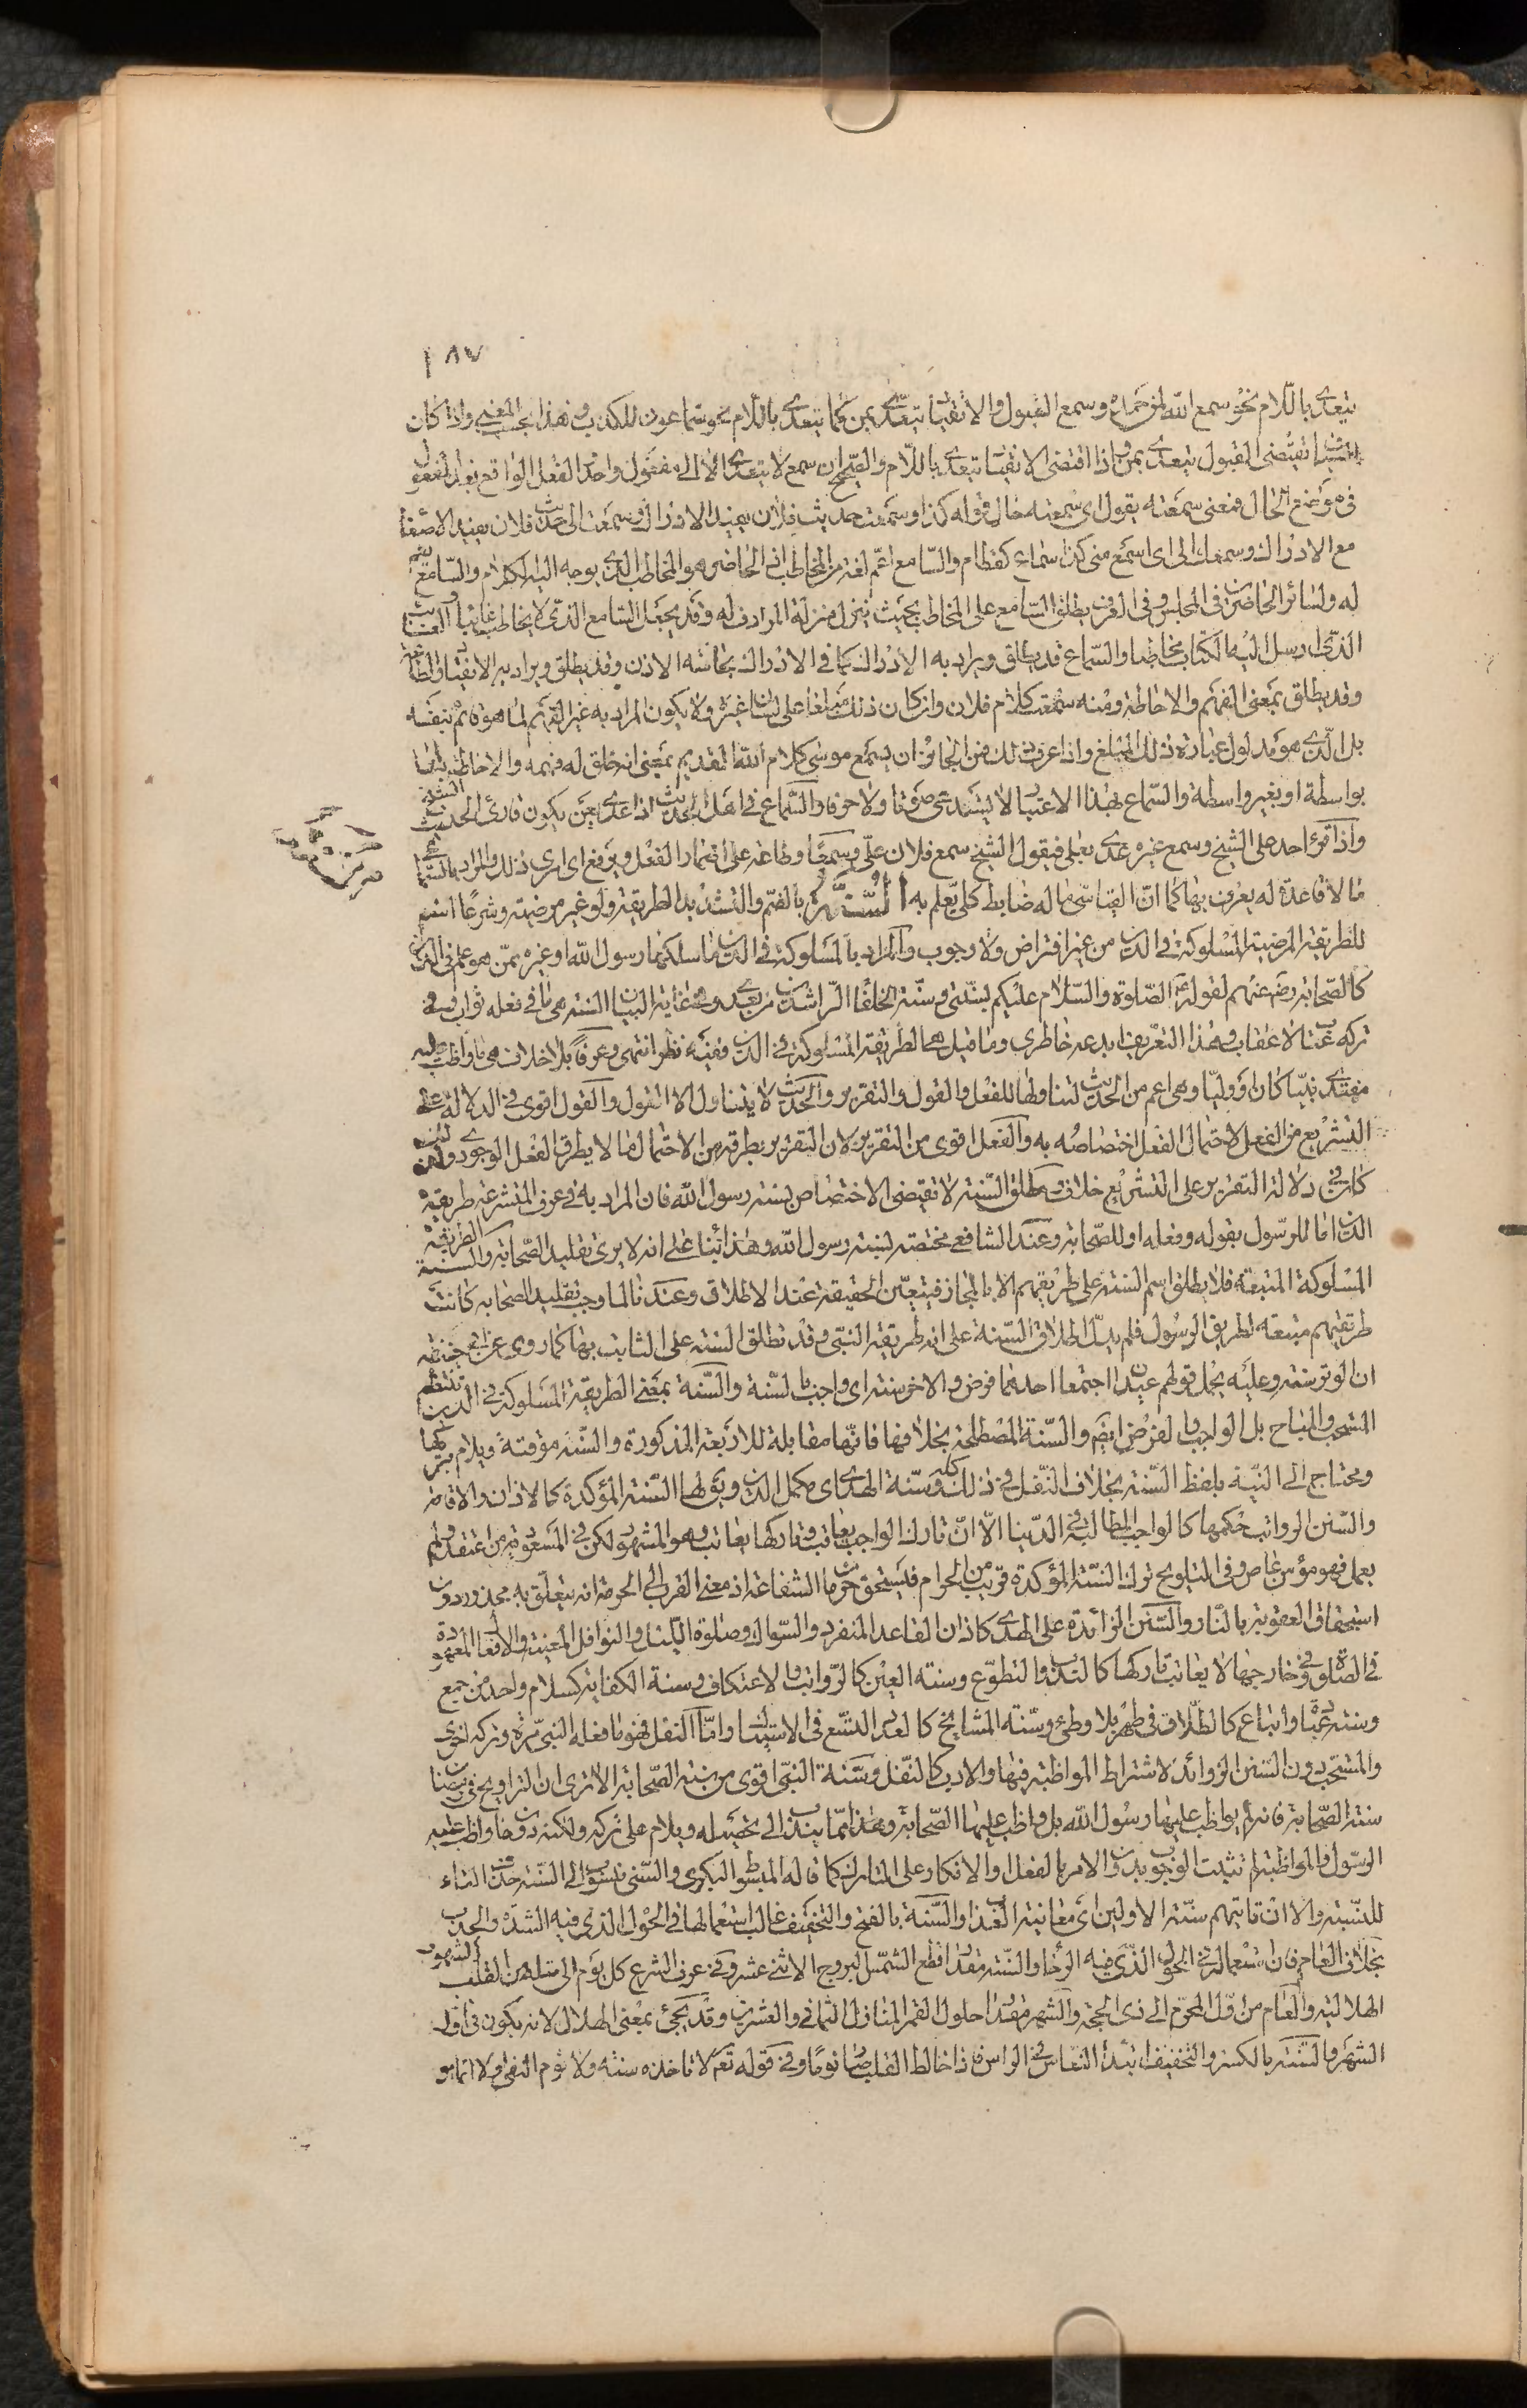 ١٨٧
يتعدى باللام نحو سمع الله لمن حمده وسمع القبول والانقياد يتعدى بمن كما يتعدى باللام نحو سماعون للكذب وهذا بحسب المعنى واذا كان
السياق يقتضى القبول يتعدى بمن واذا اقتضى الانقياد يتعدى باللام والصحيح ان سمع لا يتعدى الا الى مفعول واحد والفعل الواقع بعد المفعول
فى موضع الحال فمعنى سمعته يقول اى سمعته حال قوله كذا وسمعت حديث فلان يفيد الادراك وسمعت الى حديث فلان يفيد الاصغاء
مع الادراك وسمعك الى اى اسمع منى كذا سماع كقطام والسامع اعم لغة من المخاطب اذ الحاضر هو المخاطب الذى يوجه اليه الكلام والسامع يعم
له ولسائر الحاضرين فى المجلس وفى العرف يطلق السامع على المخاطب بحيث ينزل منزلة المرادف له وقد يجعل السامع الذى لا يخاطب غائبا والغائب
الذى ارسل اليه الكتاب مخاطبا والسماع قد يطلق ويراد به الادراك كما فى الادراك بحاسة الاذن وقد يطلق ويراد به الانقياد والطاعة
وقد يطلق بمعنى الفهم والاحاطة ومنه سمعت كلام فلان وان كان ذلك مبلغا على لسان غيره ولا يكون المراد به غير الفهم لما هو قائم بنفسه
بل الذى هو مدلول عبارة ذلك المبلغ واذا عرفت ذلك فمن الجائز ان يسمع موسى كلام الله القديم بمعنى انه خلق له فهمه والاحاطة به اما
بواسطة او بغير واسطة والسماع بهذا الاعتبار لا يستدعى صوتا ولا حرفا والسماع فى اهل الحديث اذا عدى بعن يكون قارئ الحديث الشيخ
واذا قرأ احد على الشيخ وسمع غيره عدى بعلى فيقول الشيخ سمع فلان على وسمعا وطاعة على اضمار الفعل ويرفع اى امرى ذلك والمراد بالسماعى
ما لا قاعدة له يعرف بها كما ان القياسى ما له ضابط كلى يعلم به السنة بالضم والتشديد الطريقة ولو غير مرضية وشرعا اسم
للطريقة المرضية المسلوكة فى الدين من غير افتراض ولا وجوب والمراد بالمسلوكة فى الدين ما سلكها رسول الله او غيره ممن هو علم فى الدين
كالصحابة رضى عنهم لقوله عليه الصلوة والسلام عليكم بسنتى وسنة الخلفاء الراشدين من بعدى وفى غاية البيان السنة هى ما فى فعله ثواب وفى
تركه عتاب لا عقاب وهذا التعريف ابدعه خاطرى وما قيل هى الطريقة المسلوكة فى الدين ففيه نظر انتهى وعرفا بلا خلاف هى ما واظب عليه
مقتدى نبيا كان او وليا وهى اعم من الحديث لتناولها للفعل والقول والتقرير والحديث لا يتناول الا القول والقول اقوى فى الدلالة على
التشريع من الفعل لاحتمال الفعل اختصاصه به والفعل اقوى من التقرير لان التقرير يطرقه من الاحتمال ما لا يطرق الفعل الوجودى ولذلك
كان فى دلالة التقرير على التشريع خلاف ومطلق السنة لا تقتضى الاختصاص بسنة رسول الله فان المراد به فى عرف المتشرعة طريقة
الدين اما للرسول بقوله وفعله او للصحابة وعند الشافعى مختصة بسنة رسول الله وهذا بناء على انه لا يرى تقليد الصحابة والسنة الطريقة
المسلوكة المتبعة فلا يطلق اسم السنة على طريقهم الا بالمجاز فيتعين الحقيقة عند الاطلاق وعندنا لما وجب تقليد الصحابة كانت
طريقتهم متبعة لطريق الرسول فلم يدل اطلاق السنة على انه طريقة النبى وقد تطلق السنة على الثابت بها كما روى عن ابى حنيفة
ان الوتر سنة وعليه يحمل قولهم عيدان اجتمعا احدهما فرض والاخر سنة اى واجب بالسنة والسنة بمعنى الطريقة المسلوكة فى الدين تنتظم
المستحب والمباح بل الواجب والفرض ايضا والسنة المصطلحة بخلافها فانها مقابلة للاربعة المذكورة والسنة مؤقتة ويلام بتركها
ومحتاج الى النية بلفظ السنة بخلاف النفل فى ذلك كله وسنة الهدى اى مكمل الدين ويق لها السنة المؤكدة كالاذان والاقامة
والسنن الرواتب حكمها كالواجب المطالبة فى الدنيا الا ان تارك الواجب يعاقب وتاركها يعاتب وهو المشهور لكن فى المسعودية من اعتقد ولم
يعمل فهو مؤمن عاص وفى التلويح ترك السنة المؤكدة قريب من الحرام فيستحق حرمان الشفاعة اذ معنى القرب الى الحرمة انه يتعلق به محذور دون
استحقاق العقوبة بالنار والسنن الزائدة على الهدى كاذان القاعد المنفرد والسواك وصلوة الليل والنوافل المعينة والافعال المعهودة
فى الصلوة وفى خارجها لا يعاتب تاركها كالندب والتطوع وسنة العين كالرواتب والاعتكاف وسنة الكفاية كسلام واحد من جمع
وسنة عبادة واتباع كالطلاق فى طهر بلا وطئ وسنة المشايخ كالعدد التسع فى الاستبناء واما النفل فهو ما فعله النبى مرة وتركه اخرى
والمستحب دون السنن الزوائد لاشتراط المواظبة فيها والادب كالنفل وسنة النبى اقوى من سنة الصحابة الا ترى ان التراويح فى رمضان
سنة الصحابة فانه لم يواظب عليها رسول الله بل واظب عليها الصحابة وهذا مما يندب الى تحصيله ويلام على تركه ولكنه دون ما واظب عليه
الرسول والمواظبة لم تثبت الوجوب بدون الامر بالفعل او الانكار على التارك كما قاله المبسوط البكرى والسنى منسوب الى السنة حذف التاء
للنسبة والا ان تاتيهم سنة الاولين اى معاينة العذاب والسنة بالفتح والتخفيف غالب استعمالها فى الحول الذى فيه الشدة والجدب
بخلاف العام فان استعماله فى الحول الذى فيه الرخاء والسنة مقدار قطع الشمس البروج الاثنى عشر وفى عرف الشرع كل يوم الى مثله من القابل الشهور
الهلالية والعام من اول المحرم الى ذى الحجة والشهر مقدار حلول القمر المنازل الثمانى والعشرين وقد يجئ بمعنى الهلال لانه يكون فى اول
الشهر والسنة بالكسر والتخفيف ابتداء النعاس فى الراس فاذا خالط القلب صار نوما وفى قوله تع لا تاخذه سنة ولا نوم النفى اولا انما هو